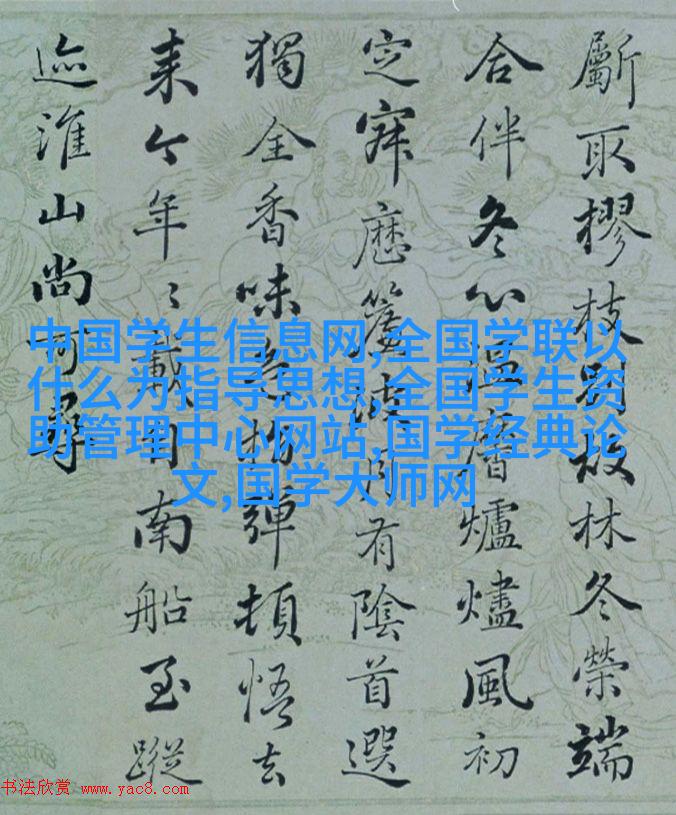 斸取樛枝別故林冬榮端
合伴冬心溫黁爐燼風初
定寂歷簷月有陰首選
獨全香味彈頓悟去
来今年〻載自南船至蹤
迹淮山尚可尋
中国学生信息网,全国学联以
什么为指导思想,全国学生资
助管理中心网站,国学经典论
文,国学大师网
书法欣赏 www.yac8.com